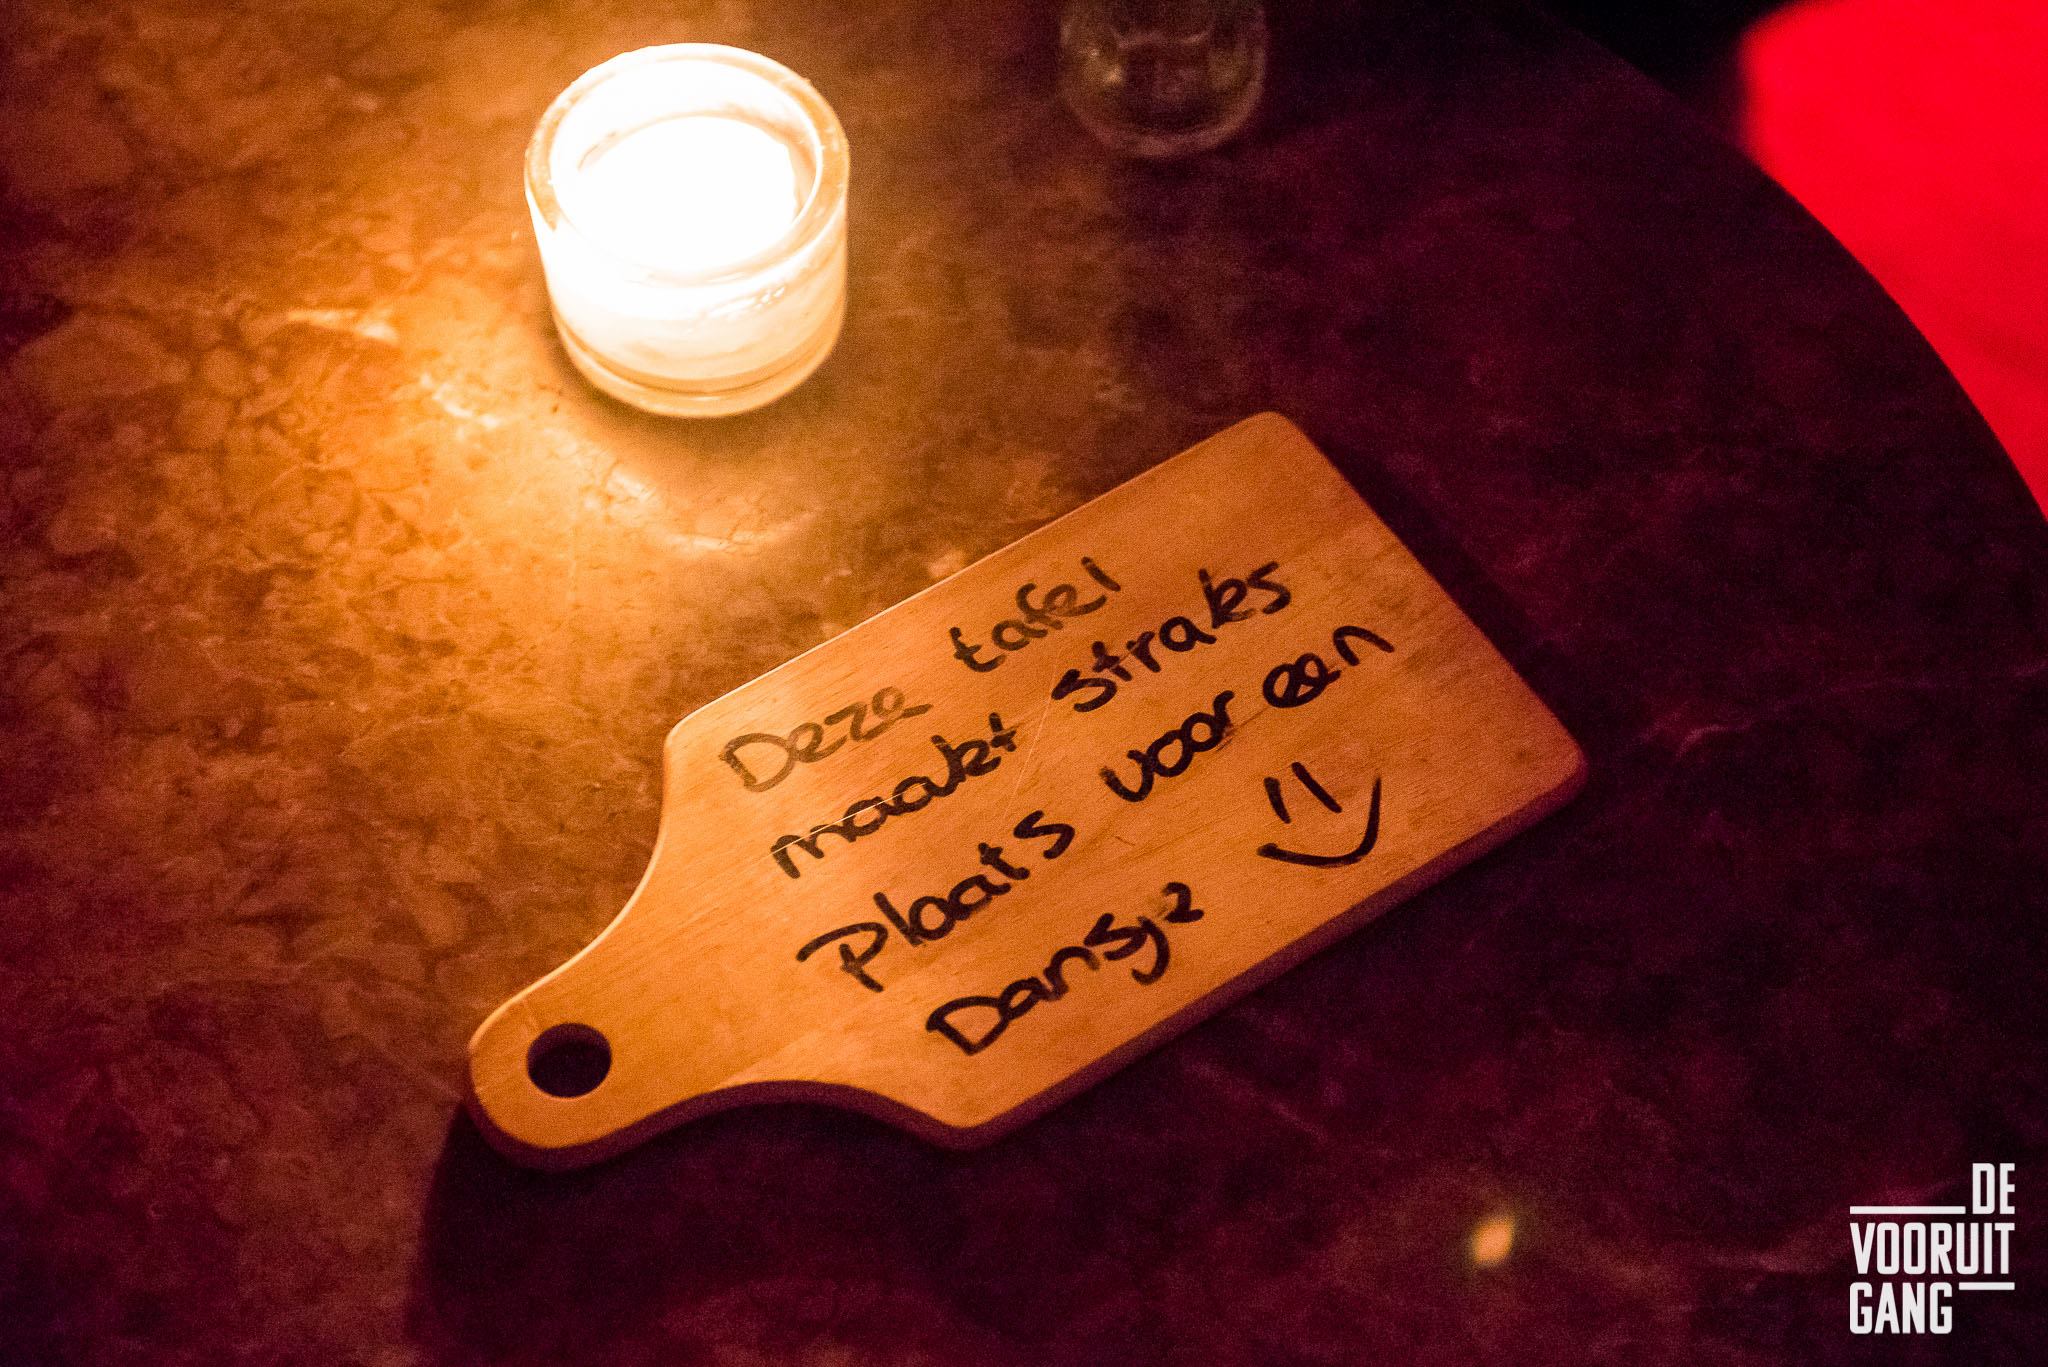 Deze tafel
maakt straks
Plaats voor een
Dansje
DE
VOORUIT
GANG